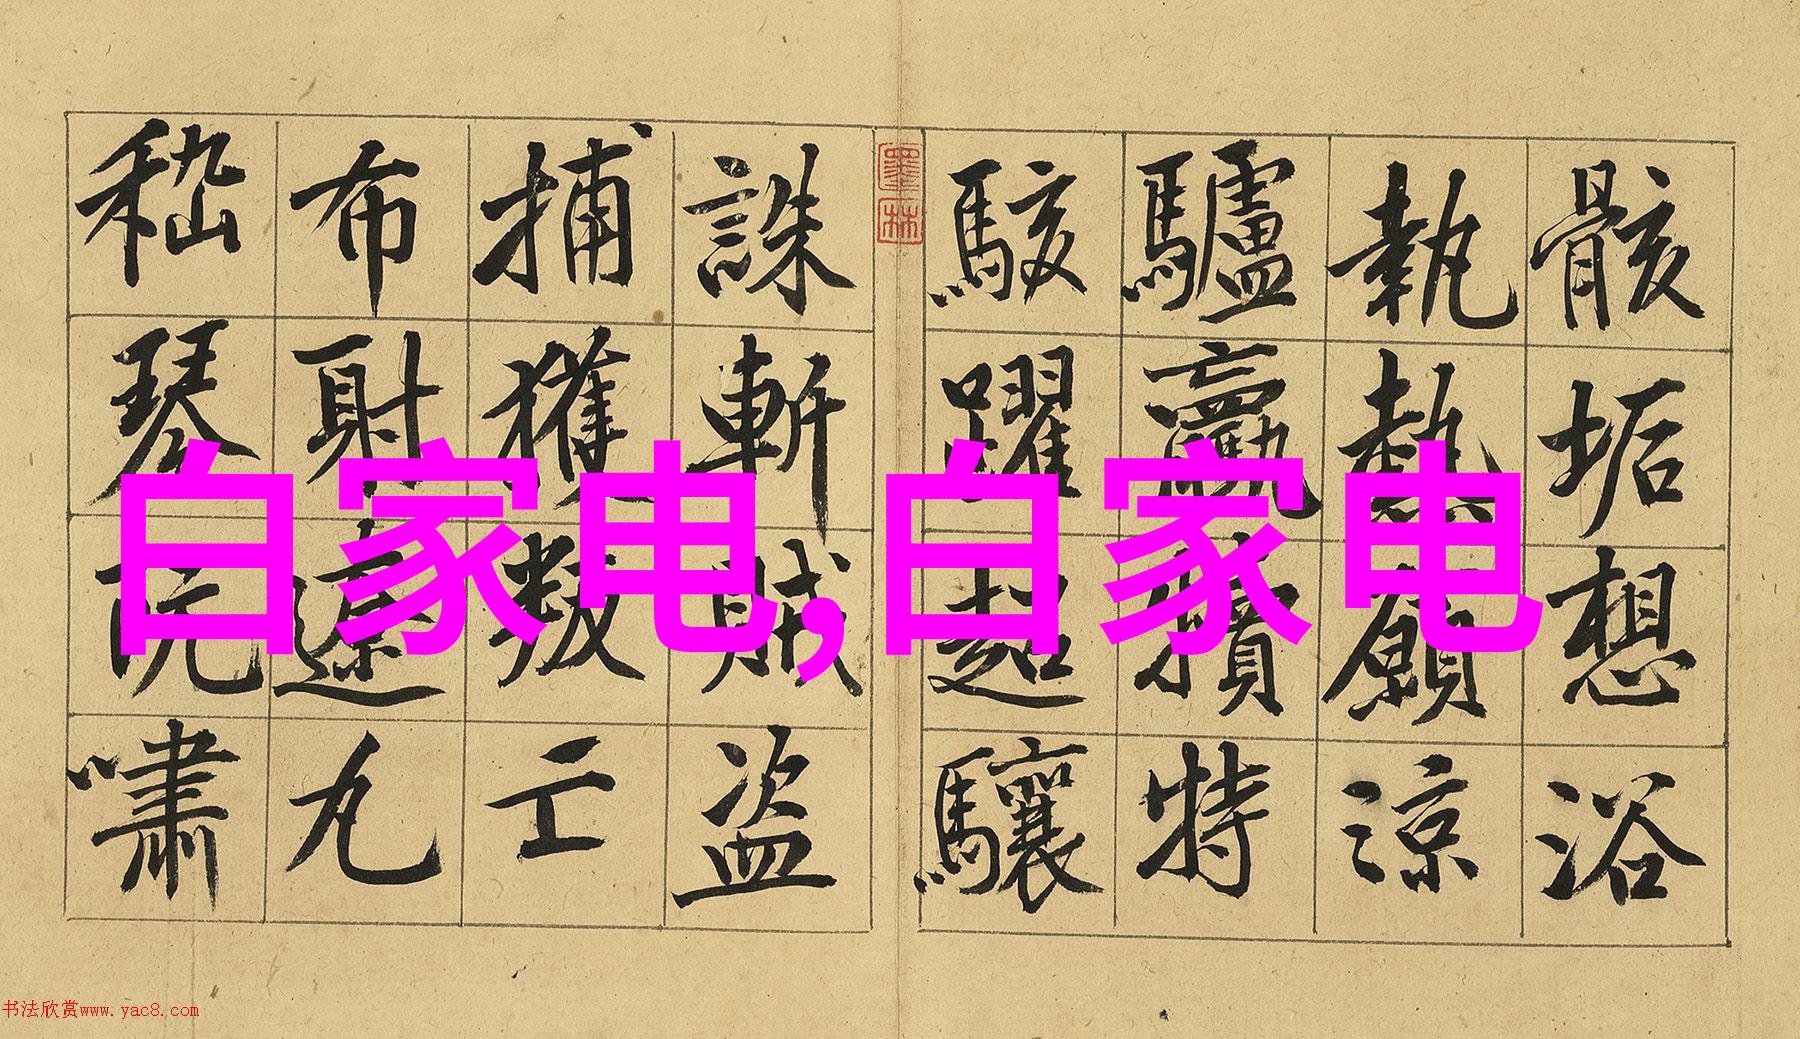 骸垢想浴
執熱願涼
驢驘犢特
駭躍超驤
墨林
誅斬賊盜
捕獲叛亡
布射遼丸
嵇琴阮嘯
白家电,白家电
书法欣赏www.yac8.com